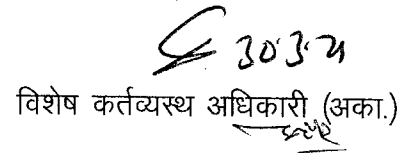 30.3.21
विशेष कर्तव्यस्थ अधिकारी (अका.)